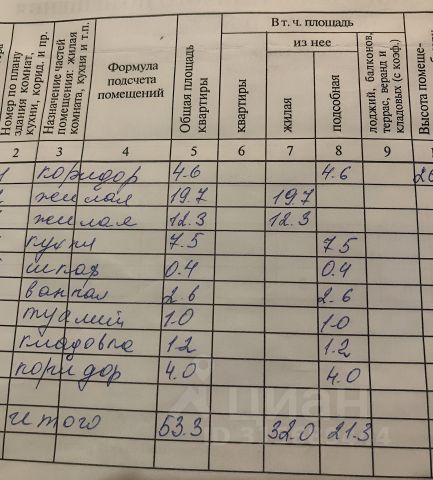 В т. ч. площадь
из нее
Номер по плану здания комнат, кухни, корид. и пр.
Назначение частей помещения: жилая комната, кухня и т.п.
Формула подсчета помещений
Общая площадь квартиры
квартиры
жилая
подсобная
лоджий, балконов, террас, веранд и кладовых (с коэф.)
Высота помеще-
2 3 4 5 6 7 8 9
коридор 4.6 4.6
жилая 19.7 19.7
жилая 12.3 12.3
кухни 7.5 7.5
шкаф 0.4 0.4
ванная 2.6 2.6
туалет 1.0 1.0
кладовка 1.2 1.2
коридор 4.0 4.0
итого 53.3 32.0 21.3
Циан